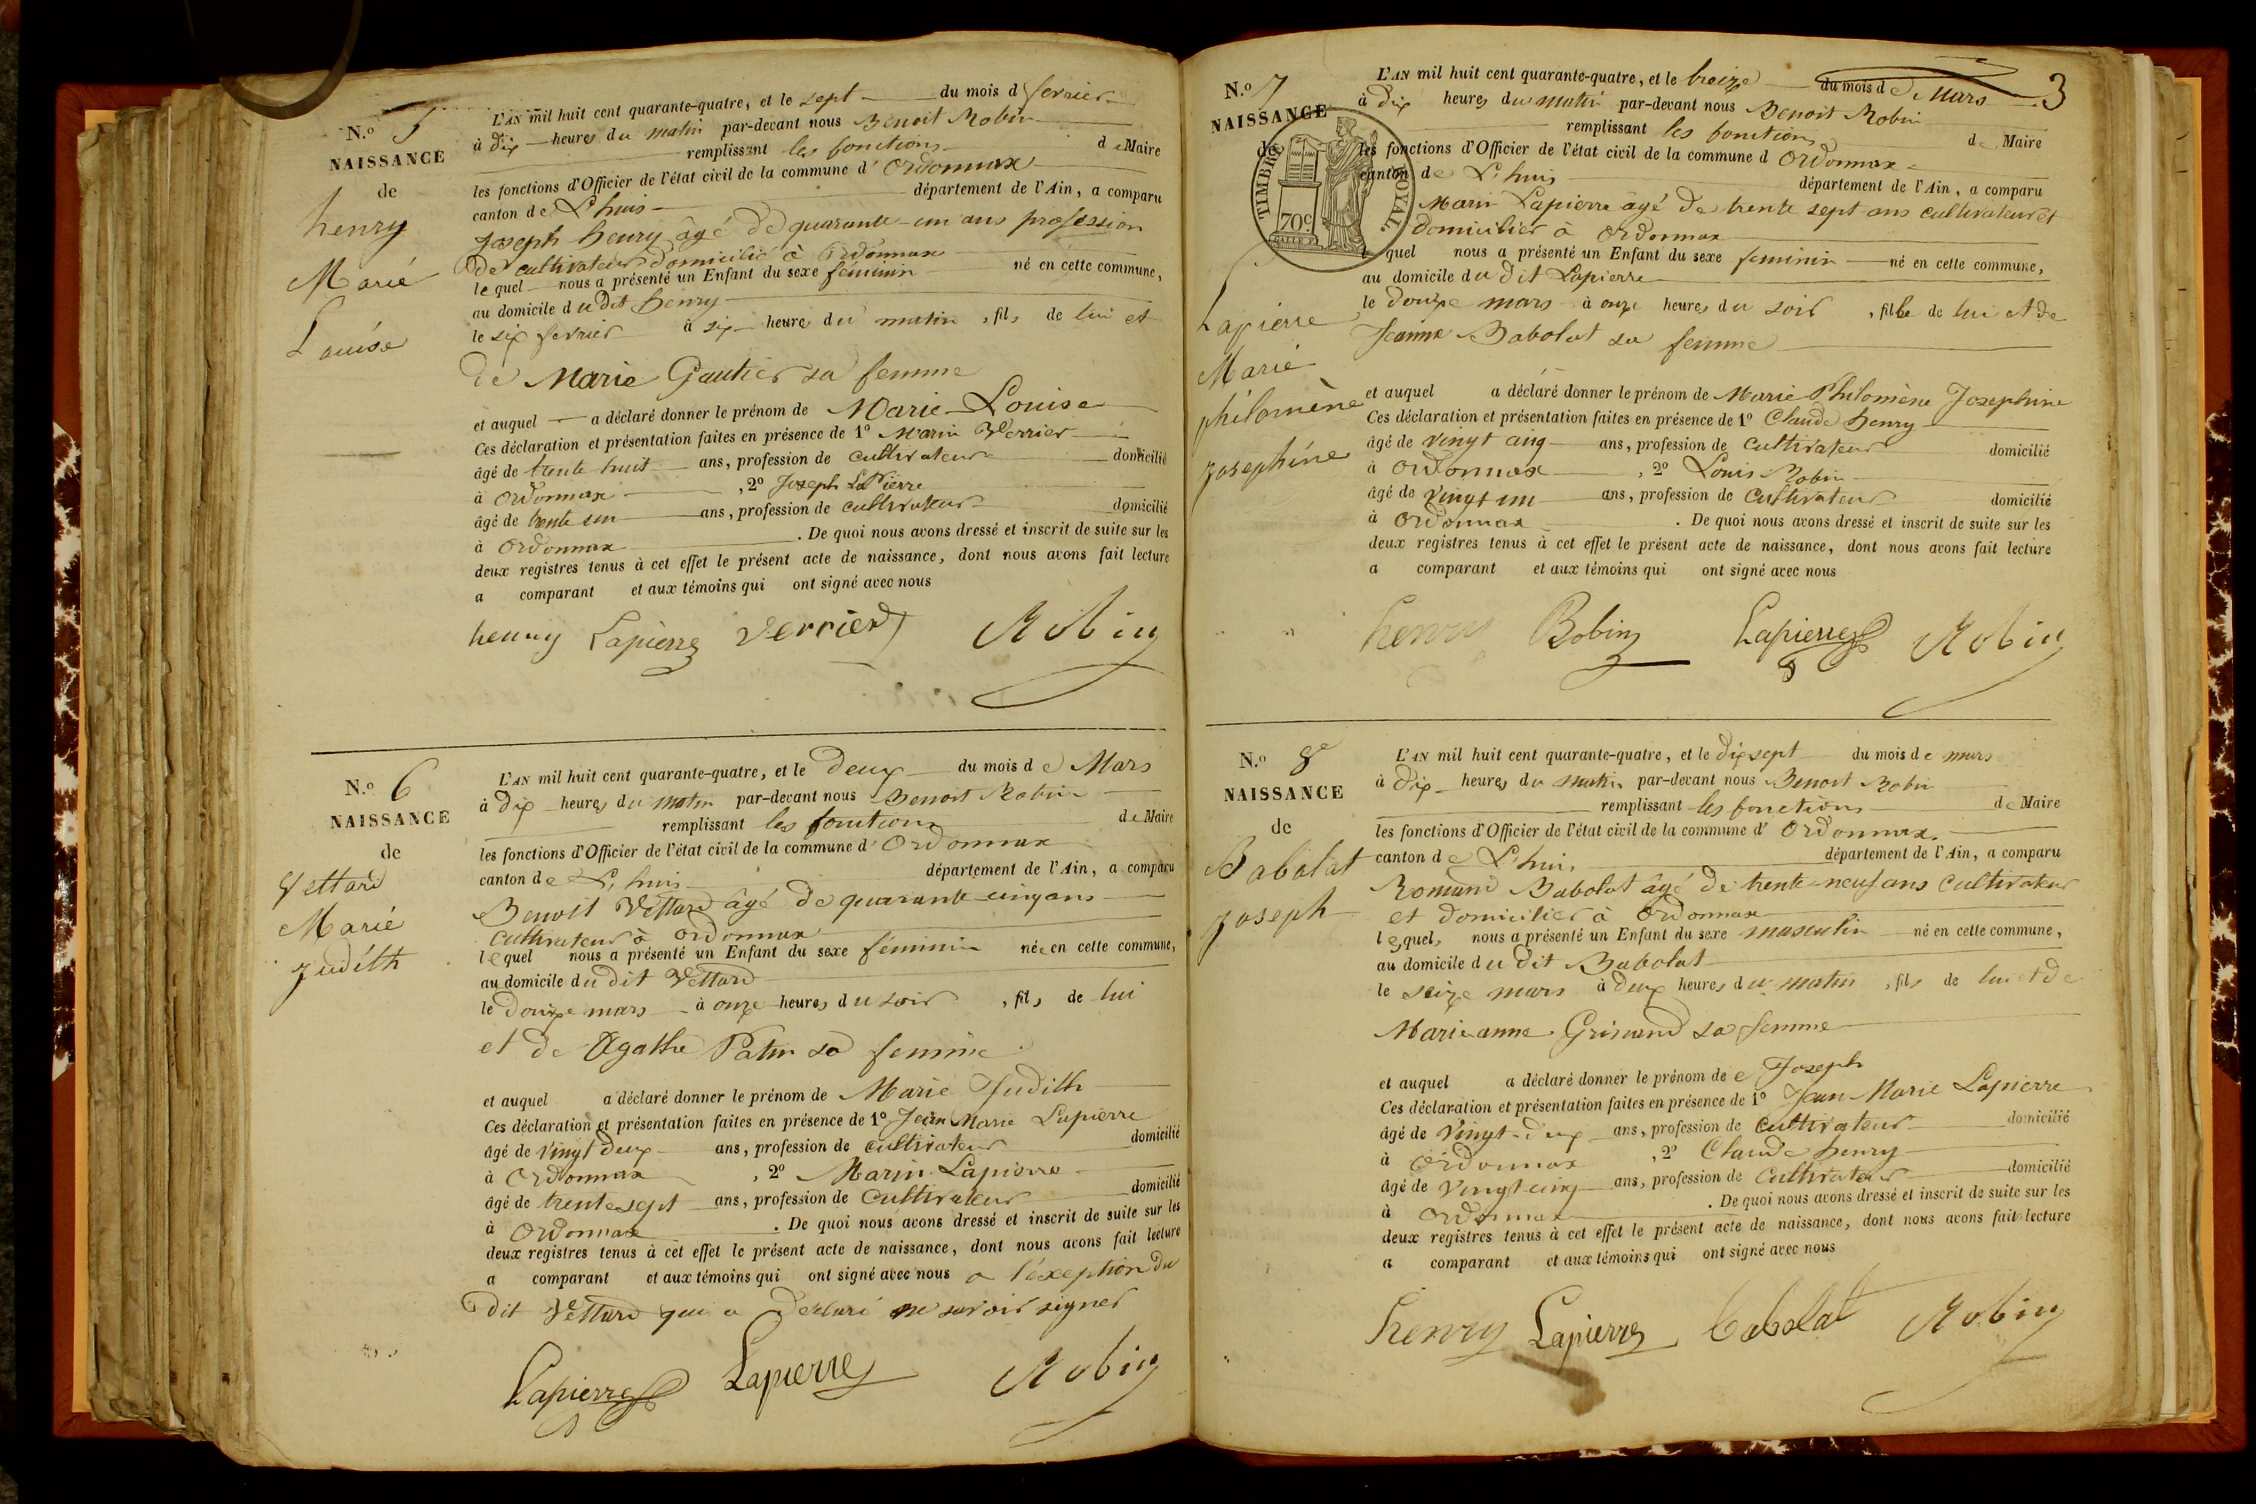 N.o 5
NAISSANCE
de
henry
Marié
Louise
L'AN mil huit cent quarante-quatre, et le sept du mois d fevrier
à dix heures du matin par-devant nous Benoit Robin
remplissant les fonctions de Maire
les fonctions d'Officier de l'état civil de la commune d'Ordonnax
canton de L'huis département de l'Ain, a comparu
Joseph henry âgé de quarante-un ans profession
de cultivateur domicilié à Ordonnax
lequel nous a présenté un Enfant du sexe féminin né en cette commune,
au domicile du dit henry
le six fevrier à six heures du matin, fils de lui et
de Marie Gautier sa femme
et auquel a déclaré donner le prénom de Marie-Louise
Ces déclaration et présentation faites en présence de 1o Marin Verrier
âgé de trente huit ans, profession de cultivateur domicilié
à Ordonnax, 2o Joseph LaPierre
âgé de trente un ans, profession de cultivateur domicilié
à Ordonnax. De quoi nous avons dressé et inscrit de suite sur les
deux registres tenus à cet effet le présent acte de naissance, dont nous avons fait lecture
a comparant et aux témoins qui ont signé avec nous
henry Lapierre Verrier Robin
N.o 6
NAISSANCE
de
Vettard
Marié
Judith
L'AN mil huit cent quarante-quatre, et le deux du mois de Mars
à dix heures du matin par-devant nous Benoit Robin
remplissant les fonctions de Maire
les fonctions d'Officier de l'état civil de la commune d'Ordonnax
canton de L'huis département de l'Ain, a comparu
Benoit Vettard âgé de quarante cinq ans
cultivateur à Ordonnax
lequel nous a présenté un Enfant du sexe féminin née en cette commune,
au domicile du dit Vettard
le douze mars à onze heures du soir, fils de lui
et de Agathe Patin sa femme
et auquel a déclaré donner le prénom de Marie Judith
Ces déclaration et présentation faites en présence de 1o Jean Marie Lapierre
âgé de vingt deux ans, profession de cultivateur domicilié
à Ordonnax, 2o Marin Lapierre
âgé de trente sept ans, profession de Cultivateur domicilié
à Ordonnax. De quoi nous avons dressé et inscrit de suite sur les
deux registres tenus à cet effet le présent acte de naissance, dont nous avons fait lecture
a comparant et aux témoins qui ont signé avec nous a l'exeption du
dit Vettard qui a declaré ne savoir signer
Lapierre Lapierre Robin
3
N.o 7
NAISSANCE
de
TIMBRE ROYAL.
70c
Lapierre
Marié
philomène
josephine
L'AN mil huit cent quarante-quatre, et le treize du mois de Mars
à dix heures du matin par-devant nous Benoit Robin
remplissant les fonctions de Maire
les fonctions d'Officier de l'état civil de la commune d Ordonnax
canton de L'huis département de l'Ain, a comparu
Marin Lapierre âgé de trente sept ans cultivateur et
domicilier à Ordonnax
lequel nous a présenté un Enfant du sexe feminin né en cette commune,
au domicile du dit Lapierre
le douze mars à onze heures du soir, fille de lui et de
Jeanne Babolat sa femme
et auquel a déclaré donner le prénom de Marie Philomène Josephine
Ces déclaration et présentation faites en présence de 1o Claude henry
âgé de vingt cinq ans, profession de cultivateur domicilié
à Ordonnax, 2o Louis Robin
âgé de vingt un ans, profession de Cultivateur domicilié
à Ordonnax. De quoi nous avons dressé et inscrit de suite sur les
deux registres tenus à cet effet le présent acte de naissance, dont nous avons fait lecture
a comparant et aux témoins qui ont signé avec nous
henry Robin Lapierre Robin
N.o 8
NAISSANCE
de
Babolat
joseph
L'AN mil huit cent quarante-quatre, et le dix sept du mois de mars
à dix heures du matin par-devant nous Benoit Robin
remplissant les fonctions de Maire
les fonctions d'Officier de l'état civil de la commune d'Ordonnax
canton de L'huis département de l'Ain, a comparu
Romand Babolat âgé de trente-neuf ans Cultivateur
et domicilier à Ordonnax
lequel nous a présenté un Enfant du sexe masculin né en cette commune,
au domicile du dit Babolat
le seize mars à deux heures du matin, fils de lui et de
Marie anne Grinand sa femme
et auquel a déclaré donner le prénom de Joseph
Ces déclaration et présentation faites en présence de 1o Jean Marie Lapierre
âgé de vingt-deux ans, profession de cultivateur domicilié
à Ordonnax, 2o Claude henry
âgé de vingt cinq ans, profession de Cultivateur domicilié
à Ordonnax. De quoi nous avons dressé et inscrit de suite sur les
deux registres tenus à cet effet le présent acte de naissance, dont nous avons fait lecture
a comparant et aux témoins qui ont signé avec nous
henry Lapierre babolat Robin